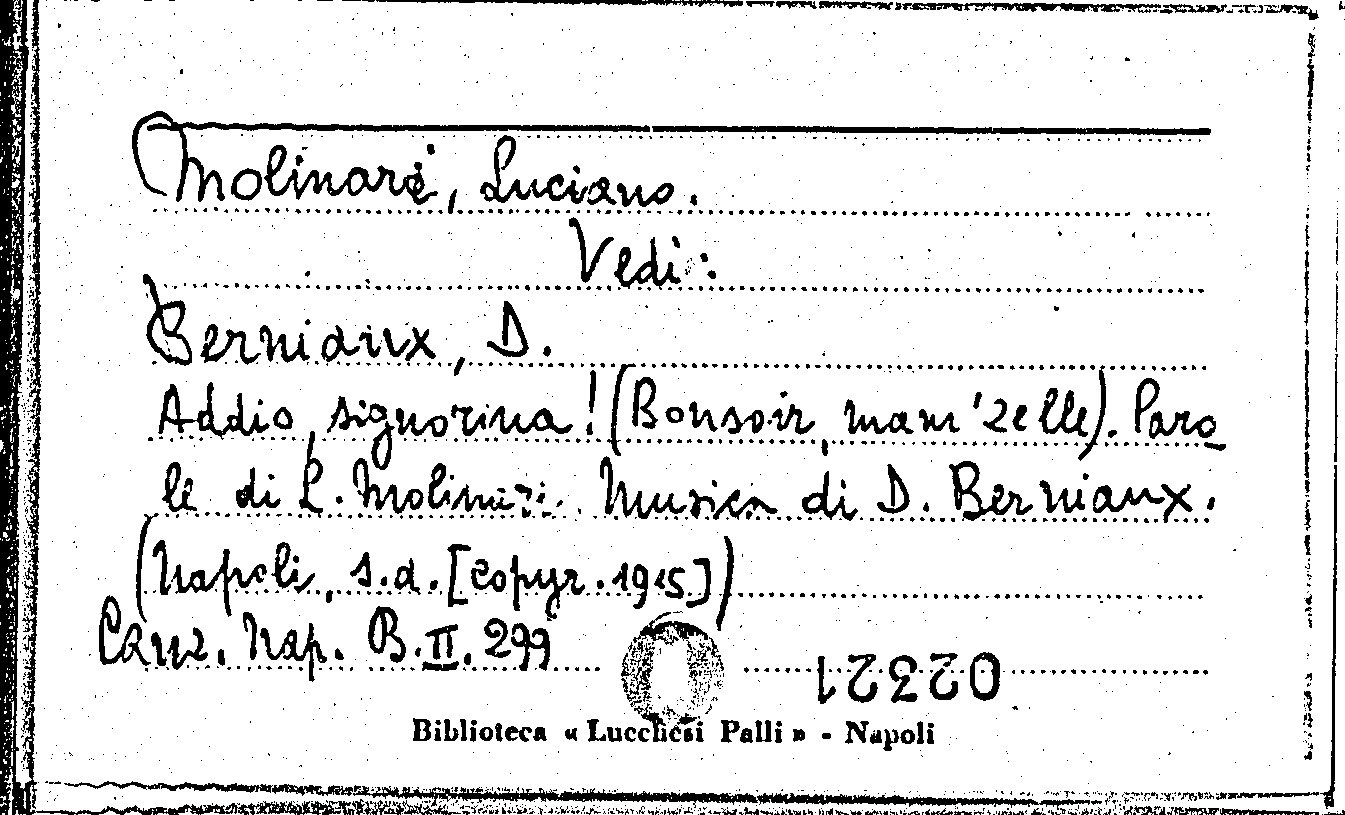 Molinari, Luciano.
Vedi:
Berniaux, D.
Addio, signorina! (Bonsoir, mam'zelle). Paro
le di L. Molinari. Musica di D. Berniaux.
(Napoli, s.d. [copyr. 1915])
Canz. Nap. B.II.299
02321
Biblioteca « Lucchesi Palli » - Napoli